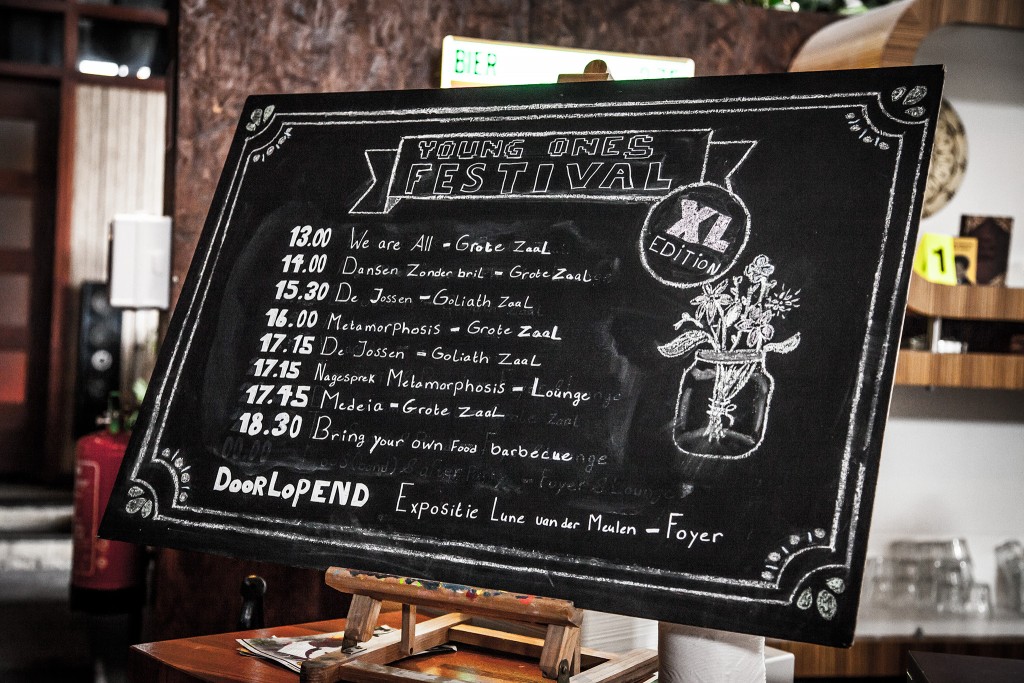 BIER
YOUNG ONES
FESTIVAL
XL
EDITION
13.00 We are All - Grote Zaal
14.00 Dansen Zonder bril - Grote Zaal
15.30 De Jossen - Goliath Zaal
16.00 Metamorphosis - Grote Zaal
17.15 De Jossen - Goliath Zaal
17.15 Nagesprek Metamorphosis - Lounge
17.45 Medeia - Grote Zaal
18.30 Bring your own Food barbecue
DoorLoPEND Expositie Lune van der Meulen - Foyer
1